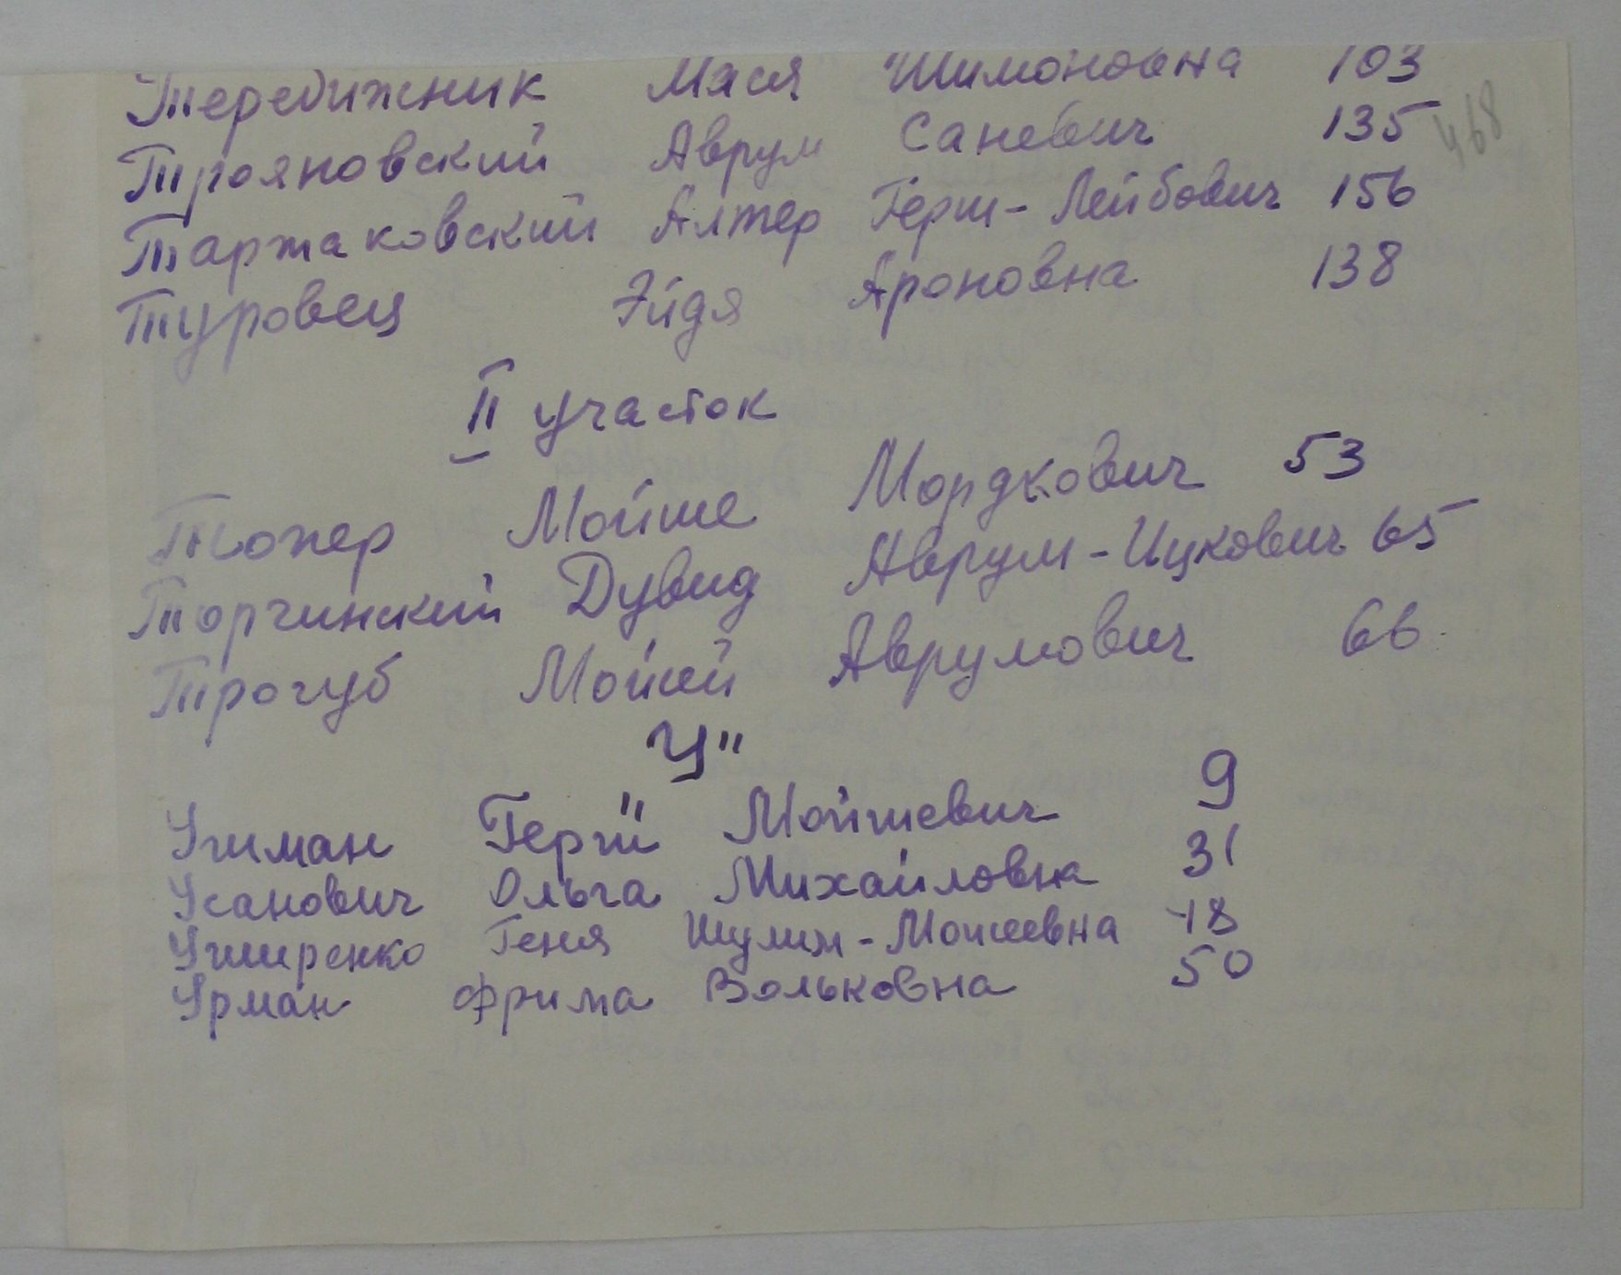 Теребижник Мася Шимоновна 103
Трояновский Аврум Саневич 135
468
Таржаковский Алтер Герш-Лейбович 156
Туровец Эйдя Ароновна 138
II участок
Топер Мойше Мордкович 53
Торчинский Дувид Аврум-Ицкович 65
Трогуб Мойсей Аврумович 66
"У"
Герш Мойшевич 9
Усанович Ольга Михайловна 31
Геня Шулим-Моисеевна 48
Урман Фрима Вольковна 50